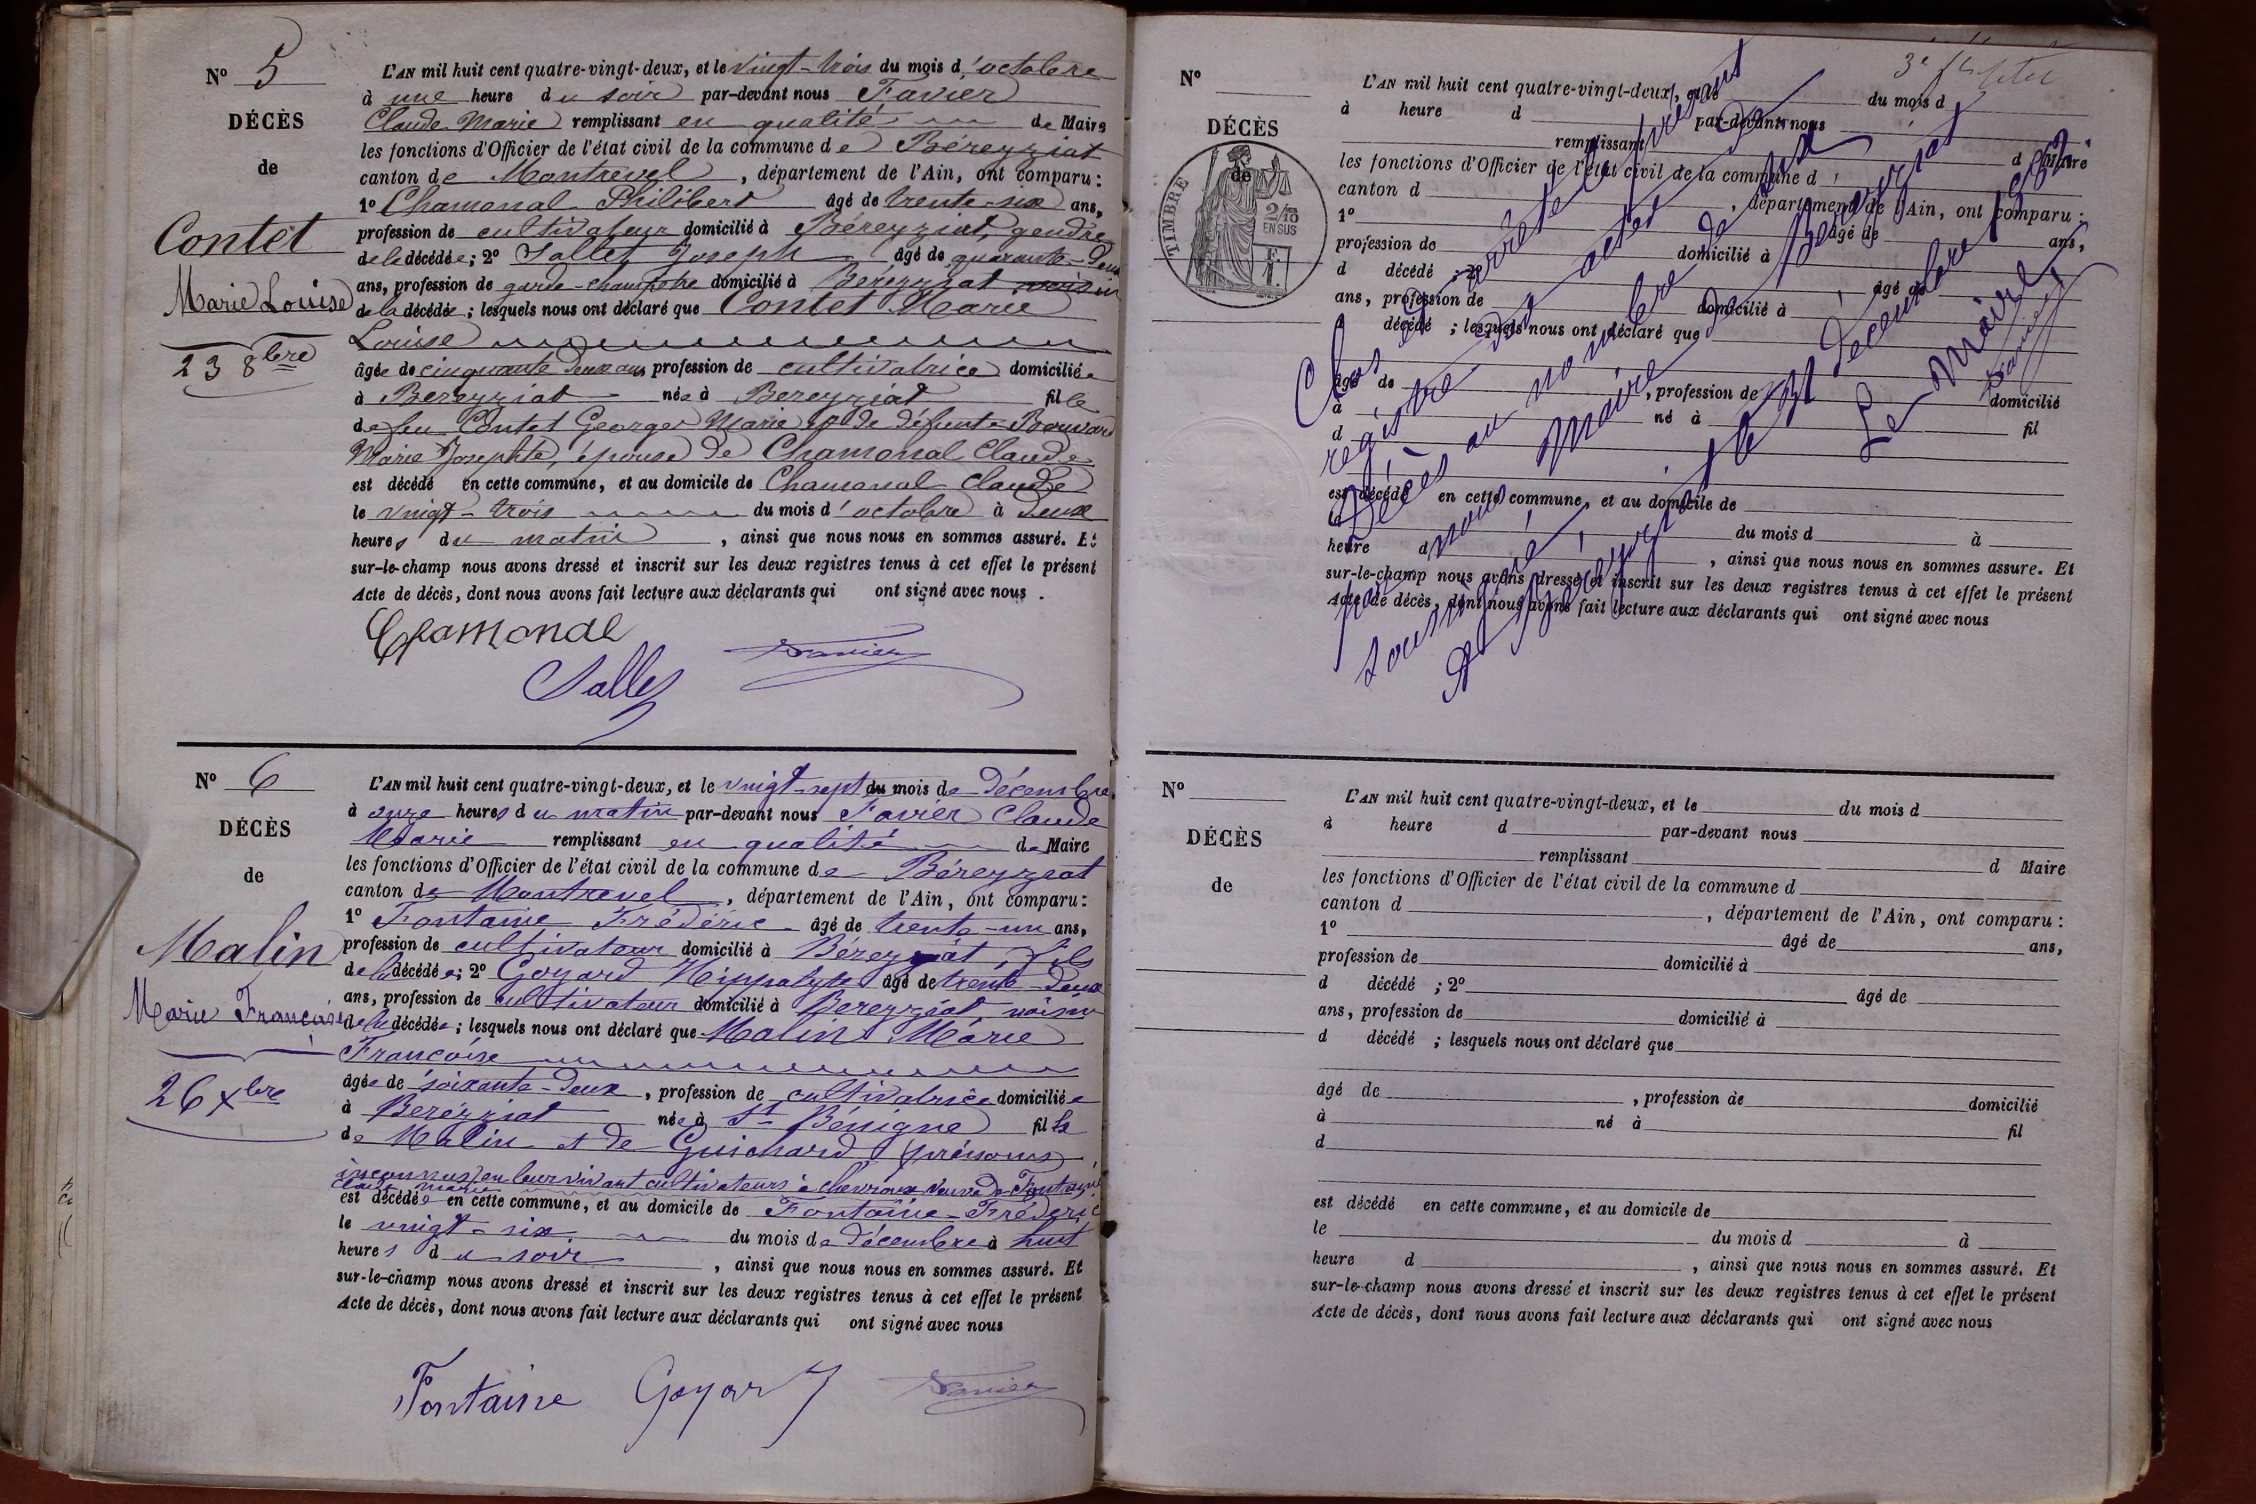 N° 5
DÉCÈS
de
Contet
Marie Louise
23 8bre
L'AN mil huit cent quatre-vingt-deux, et le vingt-trois du mois d'octobre
à une heure du soir par-devant nous Favier
Claude Marie remplissant en qualité de Maire
les fonctions d'Officier de l'état civil de la commune de Béreyziat
canton de Montrevel, département de l'Ain, ont comparu :
1° Chamonal Philibert âgé de trente-six ans,
profession de cultivateur domicilié à Béreyziat, gendre
de la décédée; 2° Sallet Joseph âgé de quarante-deux
ans, profession de garde-champêtre domicilié à Béreyziat voisin
de la décédée; lesquels nous ont déclaré que Contet Marie
Louise
âgée de cinquante deux ans profession de cultivatrice domiciliée
à Bereyziat née à Bereyziat fille
de feu Contet Georges Marie et de défunte Bouvard
Marie Josephte, épouse de Chamonal Claude
est décédé en cette commune, et au domicile de Chamonal Claude
le vingt-trois du mois d'octobre à deux
heures du matin, ainsi que nous nous en sommes assuré. Et
sur-le-champ nous avons dressé et inscrit sur les deux registres tenus à cet effet le présent
Acte de décès, dont nous avons fait lecture aux déclarants qui ont signé avec nous.
Chamonal
Sallet
Favier
N° 6
DÉCÈS
de
Malin
Marie Françoise
26 Xbre
L'AN mil huit cent quatre-vingt-deux, et le vingt-sept du mois de Décembre
à onze heures du matin par-devant nous Favier Claude
Marie remplissant en qualité de Maire
les fonctions d'Officier de l'état civil de la commune de Béreyziat
canton de Montrevel, département de l'Ain, ont comparu :
1° Fontaine Frédéric âgé de trente-un ans,
profession de cultivateur domicilié à Béreyziat, fils
de la décédée; 2° Goyard Hippolyte âgé de trente-deux
ans, profession de cultivateur domicilié à Bereyziat, voisin
de la décédée; lesquels nous ont déclaré que Malin Marie
Françoise
âgée de soixante-deux, profession de cultivatrice domiciliée
à Beréyziat née à St Bénigne fille
de Malin et de Guichard (prénoms
inconnus) en leur vivant cultivateurs à Chevroux veuve de Fontaine
Claude Marie
est décédée en cette commune, et au domicile de Fontaine Fréderic
le vingt-six du mois de décembre à huit
heures du soir, ainsi que nous nous en sommes assuré. Et
sur-le-champ nous avons dressé et inscrit sur les deux registres tenus à cet effet le présent
Acte de décès, dont nous avons fait lecture aux déclarants qui ont signé avec nous
Fontaine Goyard Favier
N°
DÉCÈS
de
TIMBRE
2/10
EN SUS
L'AN mil huit cent quatre-vingt-deux, et le du mois d
à heure d par-devant nous
remplissant d Maire
les fonctions d'Officier de l'état civil de la commune d
canton d , département de l'Ain, ont comparu :
1° âgé de ans,
profession de domicilié à
d décédé ; 2° âgé de
ans, profession de domicilié à
d décédé ; lesquels nous ont déclaré que
âgé de , profession de domicilié
à né à fil
d
est décédé en cette commune, et au domicile de
le du mois d à
heure d , ainsi que nous nous en sommes assuré. Et
sur-le-champ nous avons dressé et inscrit sur les deux registres tenus à cet effet le présent
Acte de décès, dont nous avons fait lecture aux déclarants qui ont signé avec nous
Clos et arrêté le présent
registre des actes de
Décès au nombre de six
par nous Maire de Béreyziat
soussigné
A Béreyziat le 31 Décembre 1882
Le Maire
Favier
N°
DÉCÈS
de
L'AN mil huit cent quatre-vingt-deux, et le du mois d
à heure d par-devant nous
remplissant d Maire
les fonctions d'Officier de l'état civil de la commune d
canton d , département de l'Ain, ont comparu :
1° âgé de ans,
profession de domicilié à
d décédé ; 2° âgé de
ans, profession de domicilié à
d décédé ; lesquels nous ont déclaré que
âgé de , profession de domicilié
à né à fil
d
est décédé en cette commune, et au domicile de
le du mois d à
heure d , ainsi que nous nous en sommes assuré. Et
sur-le-champ nous avons dressé et inscrit sur les deux registres tenus à cet effet le présent
Acte de décès, dont nous avons fait lecture aux déclarants qui ont signé avec nous